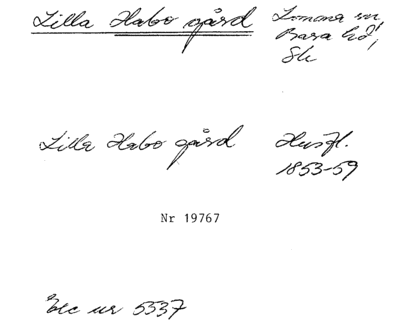 Lilla Habo gård Lomma sn,
Bara hd,
Sk
Lilla Habo gård Husfl.
1853-59
Nr 19767
Exc nr 5537